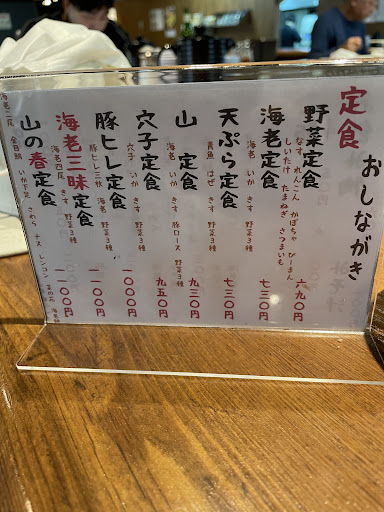 定食
おしながき
野菜定食
なす れんこん かぼちゃ ぴーまん
しいたけ たまねぎ さつまいも
六九〇円
海老定食
海老 いか きす 野菜3種
七三〇円
天ぷら定食
青魚 はぜ きす 野菜3種
七三〇円
山 定食
海老 いか きす 豚ロース 野菜3種
九三〇円
穴子定食
穴子 いか きす 野菜3種
九五〇円
豚ヒレ定食
豚ヒレ三枚 野菜3種
一〇〇〇円
海老三昧定食
海老四尾 きす 野菜3種
一一〇〇円
山の春定食
海老二尾 金目鯛 いか下足 さわら キス レンコン 菜の花
一一〇〇円